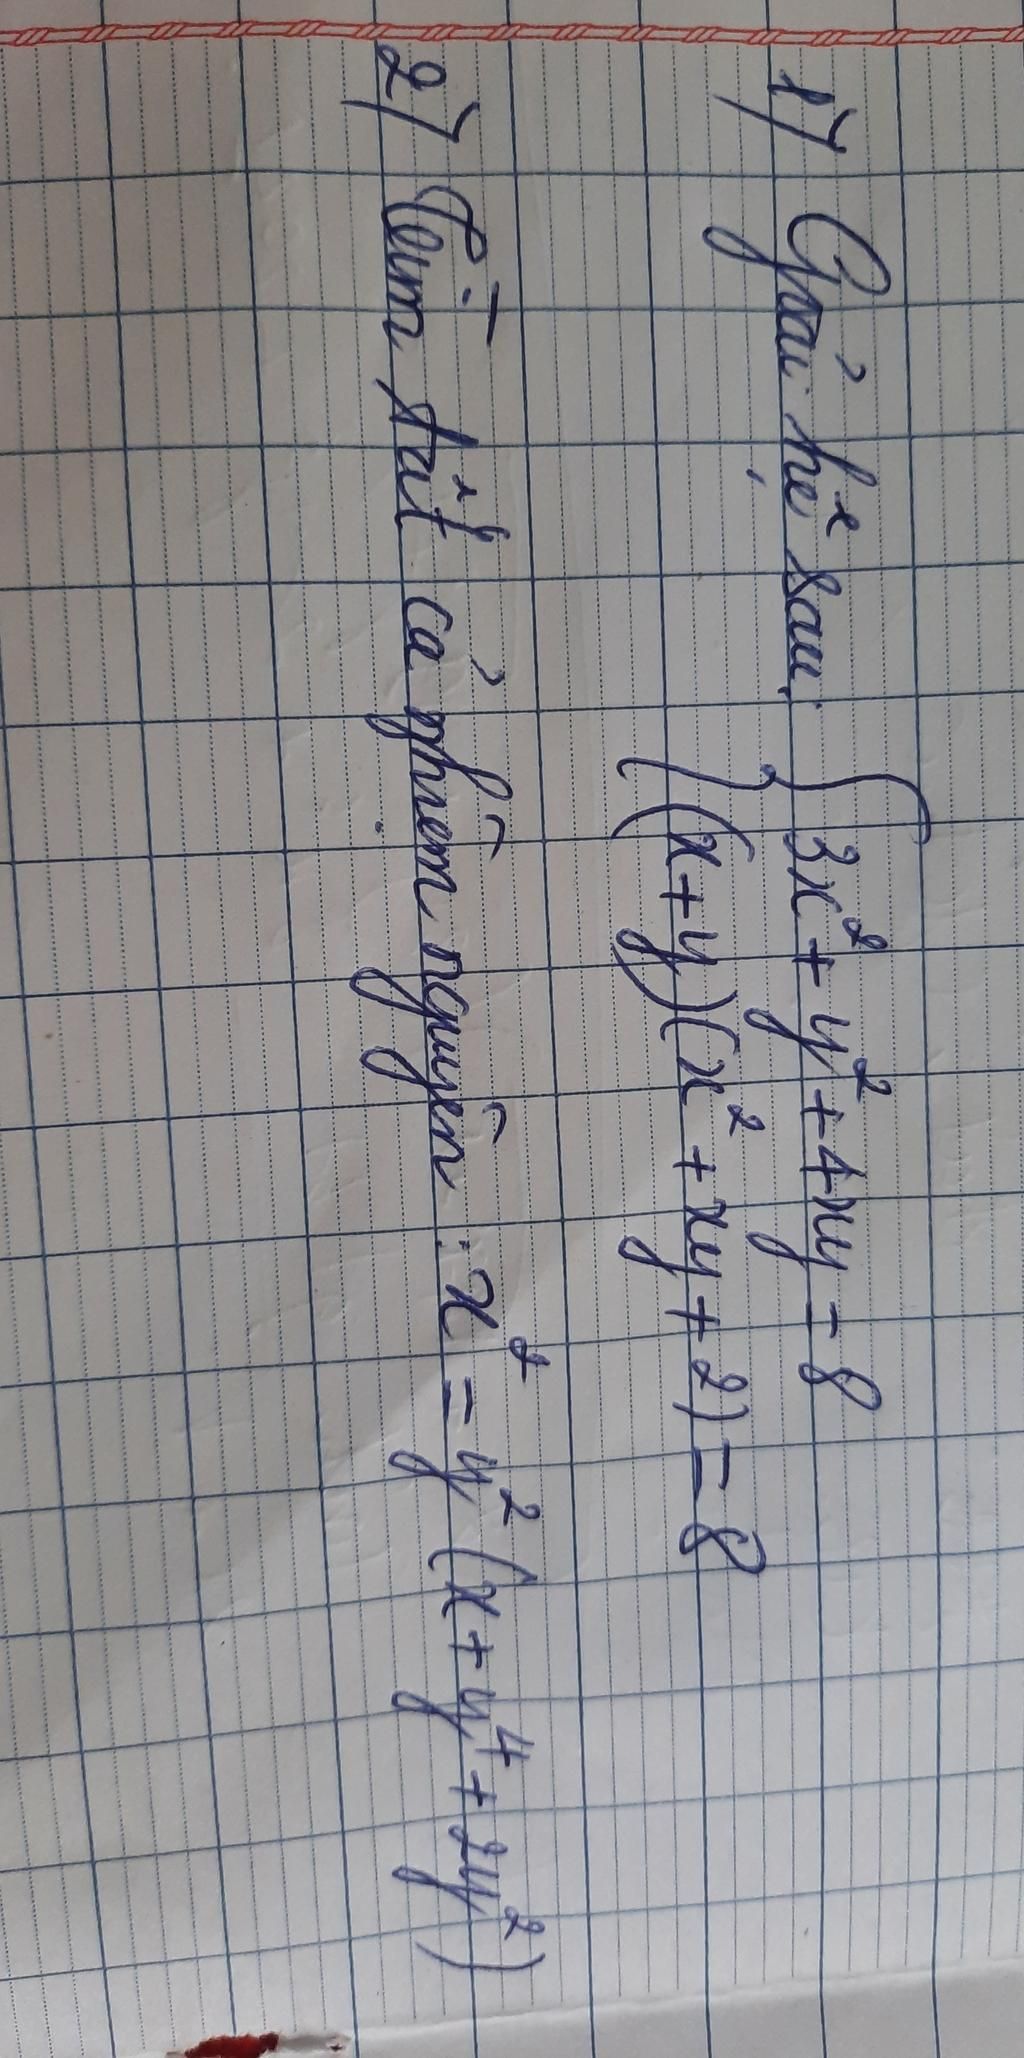 1) Giải hệ sau: { 3x² + y² + 4xy = 8
(x+y)(x² + xy + 2) = 8
2) Tìm tất cả nghiệm nguyên : x² = y² (x + y⁴ + 2y²)